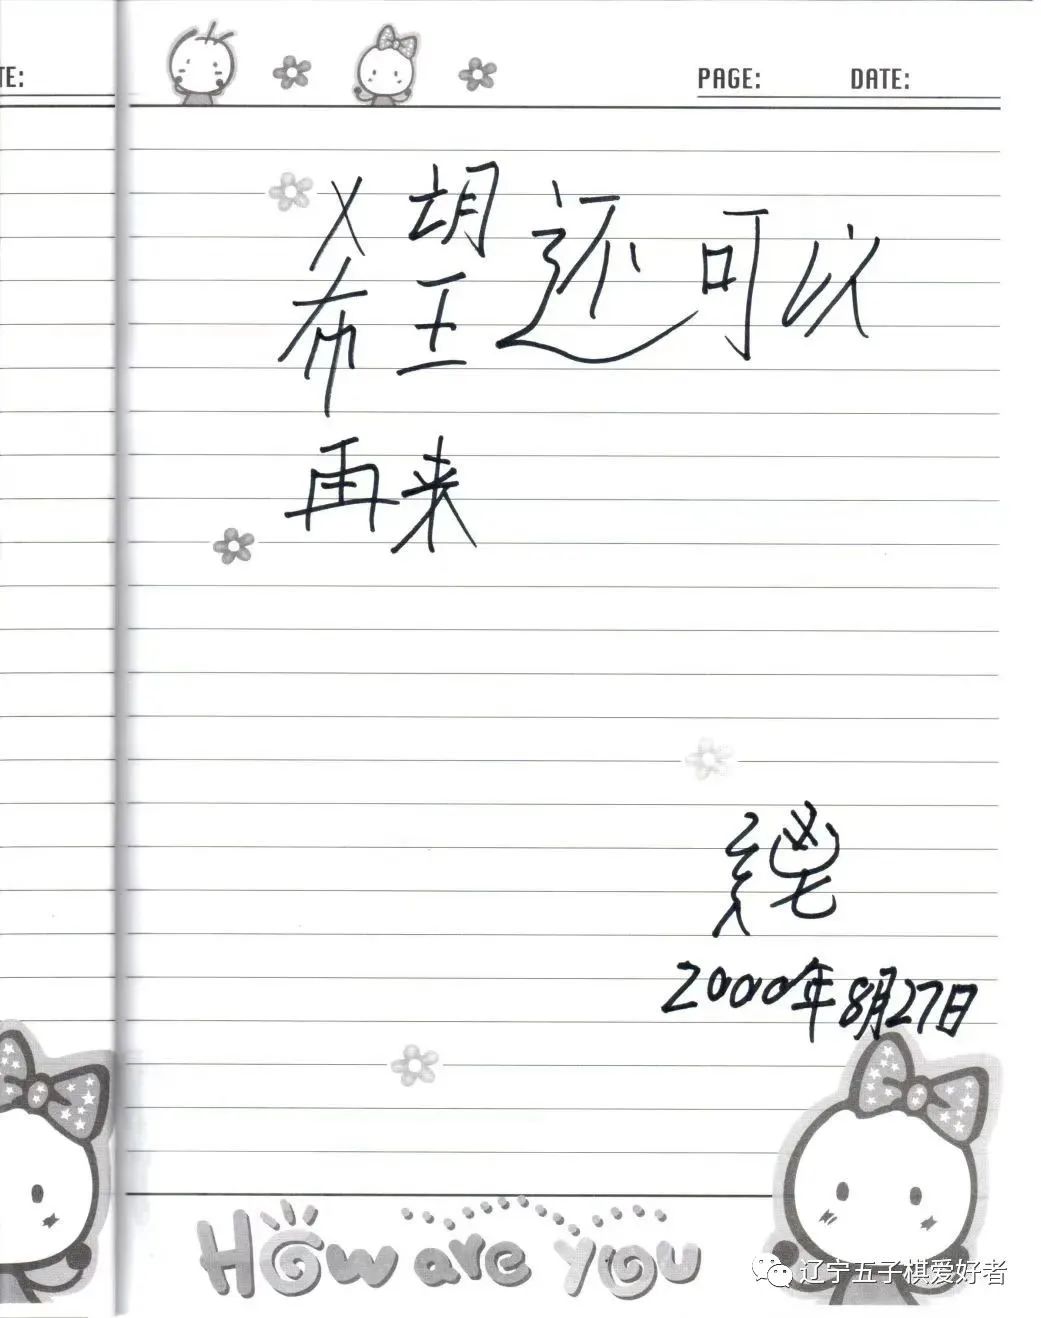 TE:
PAGE: DATE:
希胡王还可以
再来
2000年8月27日
How are you
辽宁五子棋爱好者